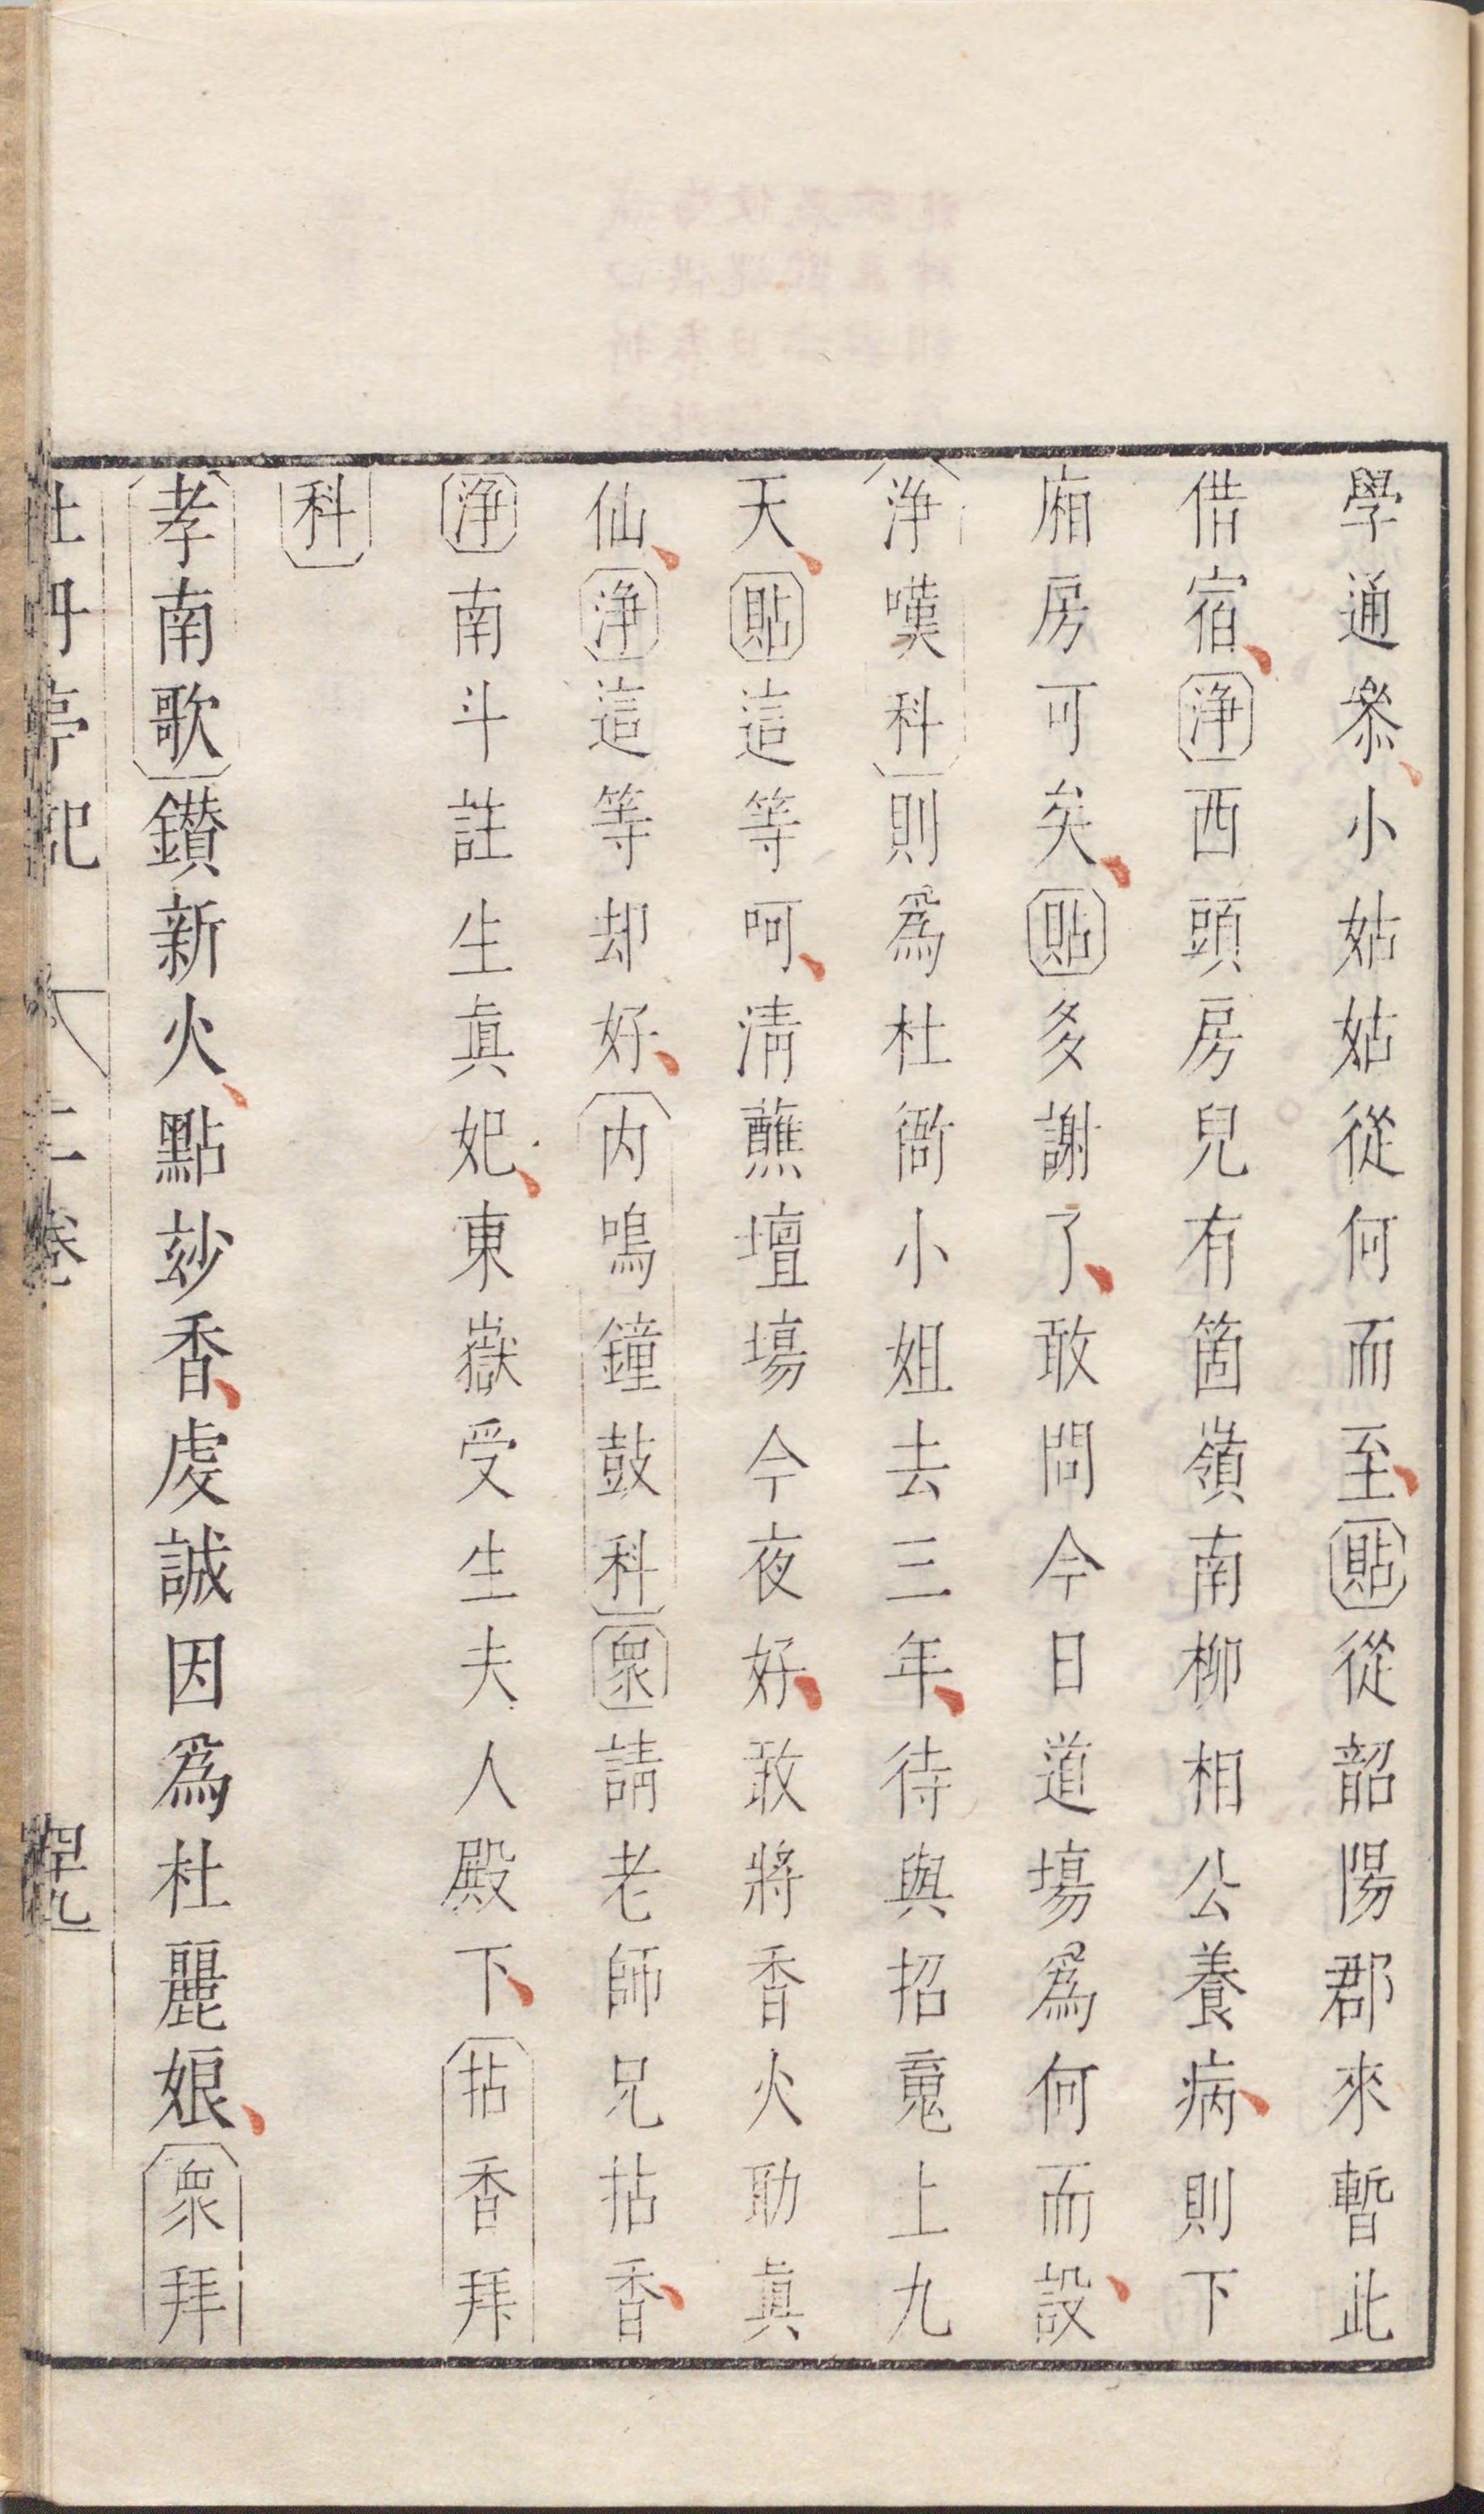 學通叅小姑姑從何而至貼從韶陽郡來暫此
借宿淨西頭房兒有箇嶺南柳相公養病則下
廂房可矣貼多謝了敢問今日道塲爲何而設
淨嘆科則爲杜衙小姐去三年待與招䰟上九
天貼這等呵淸蘸壇塲今夜好敢將香火助眞
仙淨這等却好內鳴鐘鼓科衆請老師兄拈香
淨南斗註生眞妃東嶽受生夫人殿下拈香拜
科
孝南歌鑚新火點玅香虔誠因爲杜麗娘衆拜
牡丹亭記 上卷